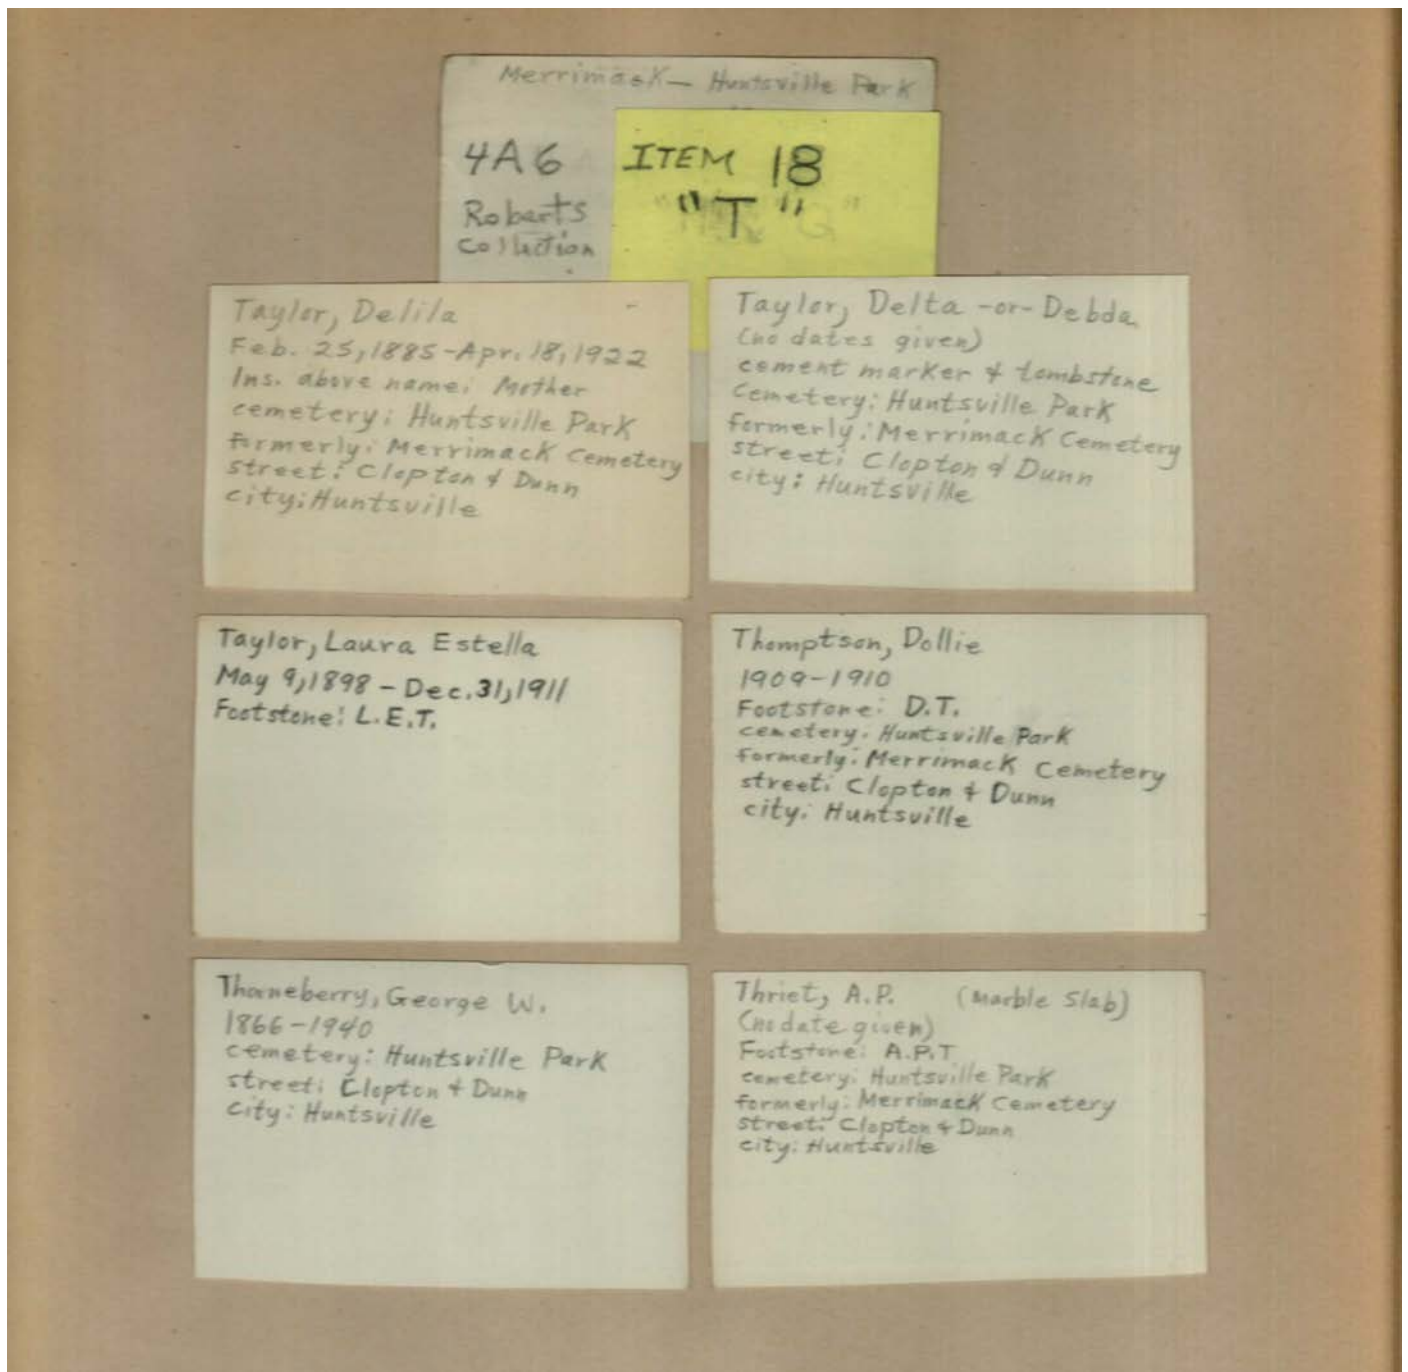 Merrimack — Huntsville Park
4A6
Roberts
Collection
ITEM 18
"T"
Taylor, Delila
Feb. 25, 1885 - Apr. 18, 1922
Ins. above name: Mother
cemetery: Huntsville Park
formerly: Merrimack Cemetery
street: Clopton & Dunn
city: Huntsville
Taylor, Delta -or- Debda
(no dates given)
cement marker & tombstone
Cemetery: Huntsville Park
formerly: Merrimack Cemetery
street: Clopton & Dunn
city: Huntsville
Taylor, Laura Estella
May 9, 1898 - Dec. 31, 1911
Footstone: L.E.T.
Thomptson, Dollie
1909-1910
Footstone: D.T.
cemetery: Huntsville Park
formerly: Merrimack Cemetery
street: Clopton & Dunn
city: Huntsville
Thorneberry, George W.
1866-1940
cemetery: Huntsville Park
street: Clopton & Dunn
city: Huntsville
Thriet, A.P. (Marble Slab)
(no date given)
Footstone: A.P.T
cemetery: Huntsville Park
formerly: Merrimack Cemetery
street: Clopton & Dunn
city: Huntsville